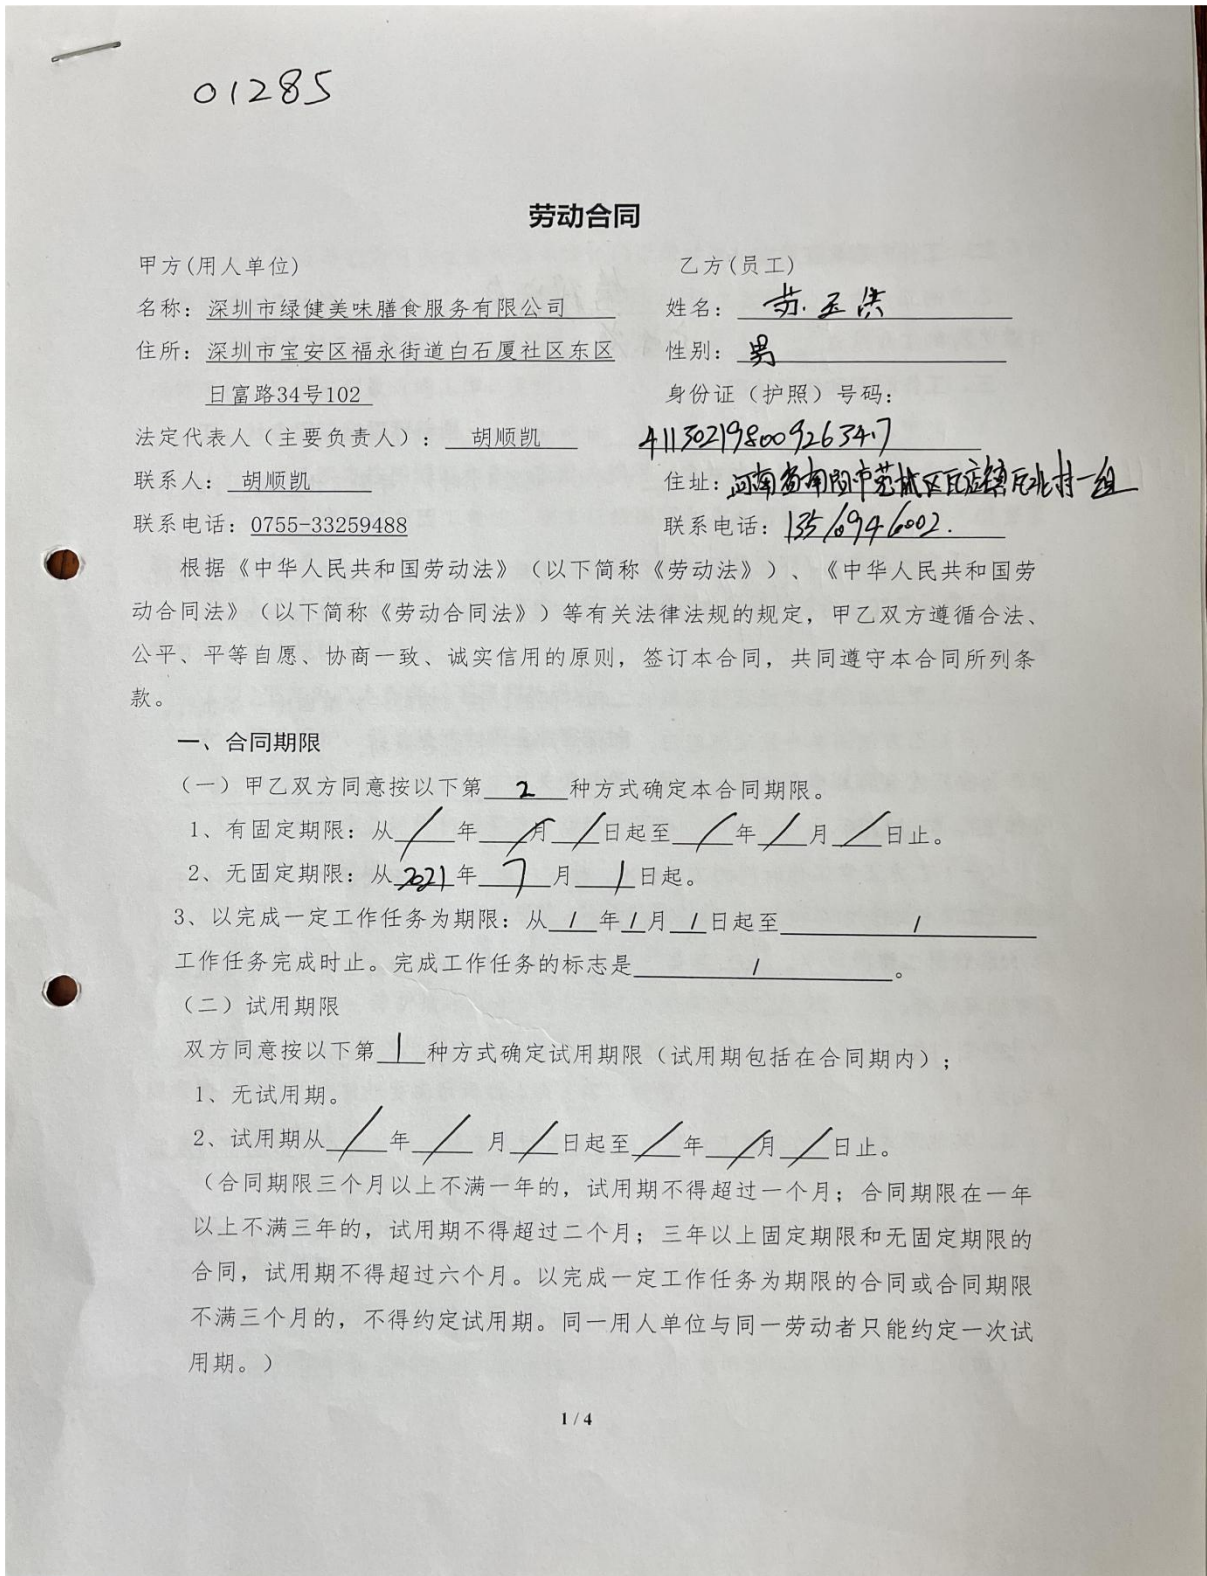 01285
劳动合同
甲方(用人单位)
乙方(员工)
名称：深圳市绿健美味膳食服务有限公司
姓名：苏玉洪
住所：深圳市宝安区福永街道白石厦社区东区
性别：男
日富路34号102
身份证（护照）号码：
法定代表人（主要负责人）：胡顺凯
411302198009263417
联系人：胡顺凯
住址：河南省南阳市宛城区瓦店镇瓦北村一组
联系电话：0755-33259488
联系电话：13516946002.
根据《中华人民共和国劳动法》（以下简称《劳动法》）、《中华人民共和国劳
动合同法》（以下简称《劳动合同法》）等有关法律法规的规定，甲乙双方遵循合法、
公平、平等自愿、协商一致、诚实信用的原则，签订本合同，共同遵守本合同所列条
款。
一、合同期限
（一）甲乙双方同意按以下第2种方式确定本合同期限。
1、有固定期限：从/年/月/日起至/年/月/日止。
2、无固定期限：从2021年7月1日起。
3、以完成一定工作任务为期限：从/年/月/日起至/
工作任务完成时止。完成工作任务的标志是/。
（二）试用期限
双方同意按以下第1种方式确定试用期限（试用期包括在合同期内）；
1、无试用期。
2、试用期从/年/月/日起至/年/月/日止。
（合同期限三个月以上不满一年的，试用期不得超过一个月；合同期限在一年
以上不满三年的，试用期不得超过二个月；三年以上固定期限和无固定期限的
合同，试用期不得超过六个月。以完成一定工作任务为期限的合同或合同期限
不满三个月的，不得约定试用期。同一用人单位与同一劳动者只能约定一次试
用期。）
1 / 4